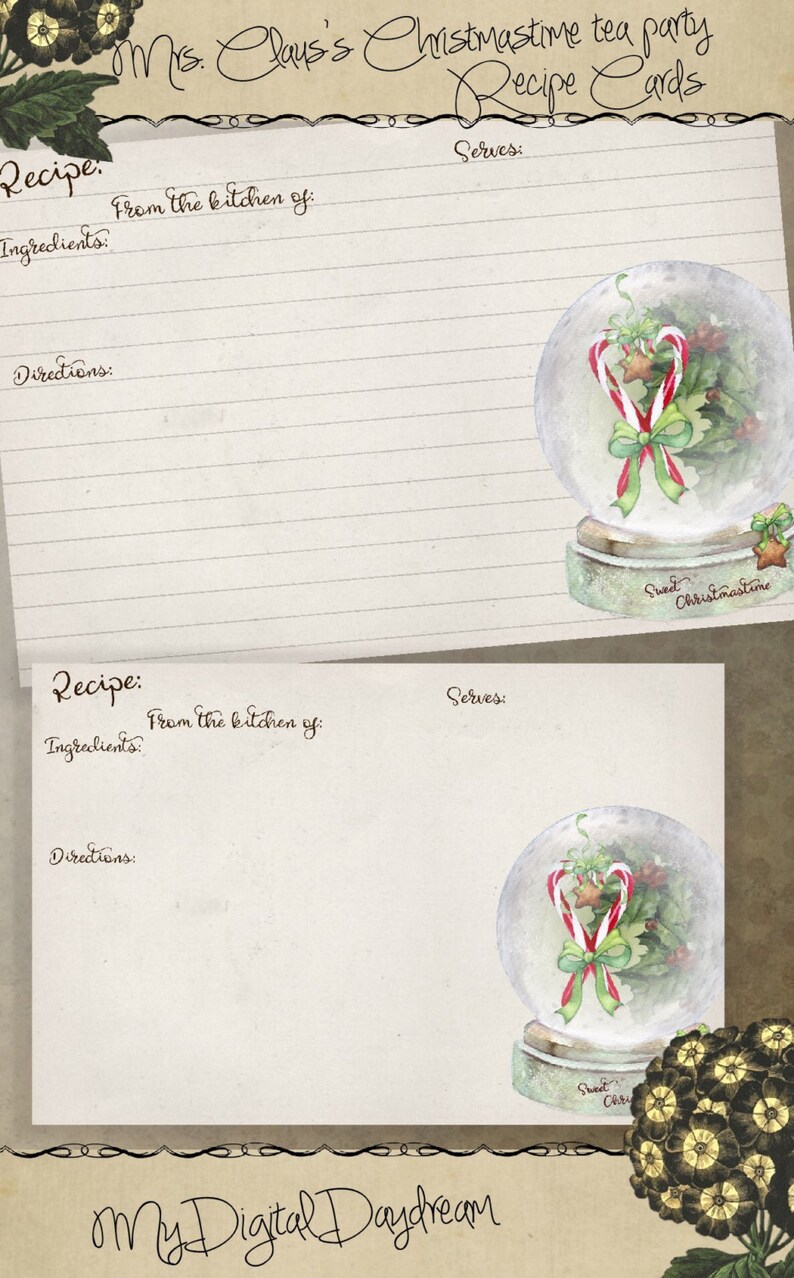 Mrs. Claus's Christmastime tea party
Recipe Cards
Recipe:
Serves:
From the kitchen of:
Ingredients:
Directions:
Sweet
Christmastime
Recipe:
Serves:
From the kitchen of:
Ingredients:
Directions:
Sweet
Chri
MyDigitalDaydream